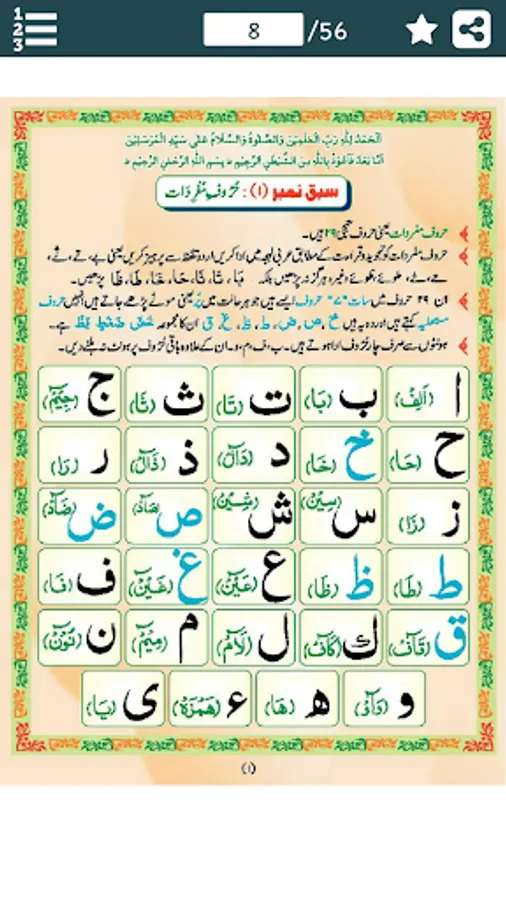 1
2
3
8 /56
اَلْحَمْدُ لِلّٰهِ رَبِّ الْعٰلَمِيْنَ وَالصَّلٰوةُ وَالسَّلَامُ عَلٰى سَيِّدِ الْمُرْسَلِيْنَ
اَمَّا بَعْدُ فَاَعُوْذُ بِاللّٰهِ مِنَ الشَّيْطٰنِ الرَّجِيْمِ ؕ بِسْمِ اللّٰهِ الرَّحْمٰنِ الرَّحِيْمِ ؕ
سبق نمبر (۱) : حُرُوفِ مُفْرَدَات
حروف مفردات یعنی حروف تہجی ۲۹ ہیں۔
حروف مفردات کو تجوید و قراءت کے مطابق عربی لہجہ میں ادا کریں اردو تلفظ سے پرہیز کریں یعنی بے، تے، ثے،
حے، خے، طوئے، ظوئے وغیرہ ہرگز نہ پڑھیں بلکہ بَا، تَا، ثَا، حَا، خَا، طَا، ظَا پڑھیں۔
ان ۲۹ حروف میں سات "۷" حروف ایسے ہیں جو ہر حالت میں پُر یعنی موٹے پڑھے جاتے ہیں انہیں حروف
مستعلیہ کہتے ہیں اور وہ یہ ہیں خ، ص، ض، ط، ظ، غ، ق ان کا مجموعہ خُصَّ ضَغْطٍ قِظْ ہے۔
ہونٹوں سے صرف چار حروف ادا ہوتے ہیں۔ ب، ف، م، و۔ ان کے علاوہ باقی حُرُوف پر ہونٹ نہ ہلنے دیں۔
ا (اَلِفْ) ب (بَا) ت (تَا) ث (ثَا) ج (جِيْمْ)
ح (حَا) خ (خَا) د (دَالْ) ذ (ذَالْ) ر (رَا)
ز (زَا) س (سِيْنْ) ش (شِيْنْ) ص (صَادْ) ض (ضَادْ)
ط (طَا) ظ (ظَا) ع (عَيْنْ) غ (غَيْنْ) ف (فَا)
ق (قَافْ) ك (كَافْ) ل (لَامْ) م (مِيْمْ) ن (نُوْنْ)
و (وَاوْ) ھ (هَا) ء (هَمْزَهْ) ی (يَا)
(۱)